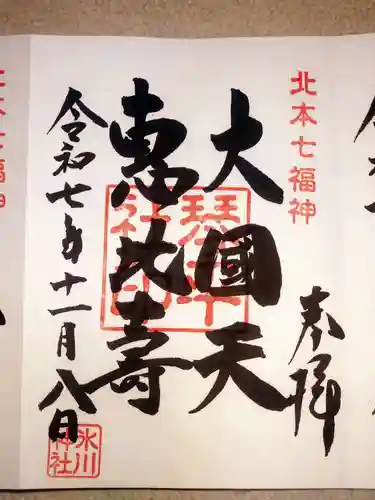 北本七福神
奉拝
大國天
恵比寿
令和七年十一月八日
氷川
神社